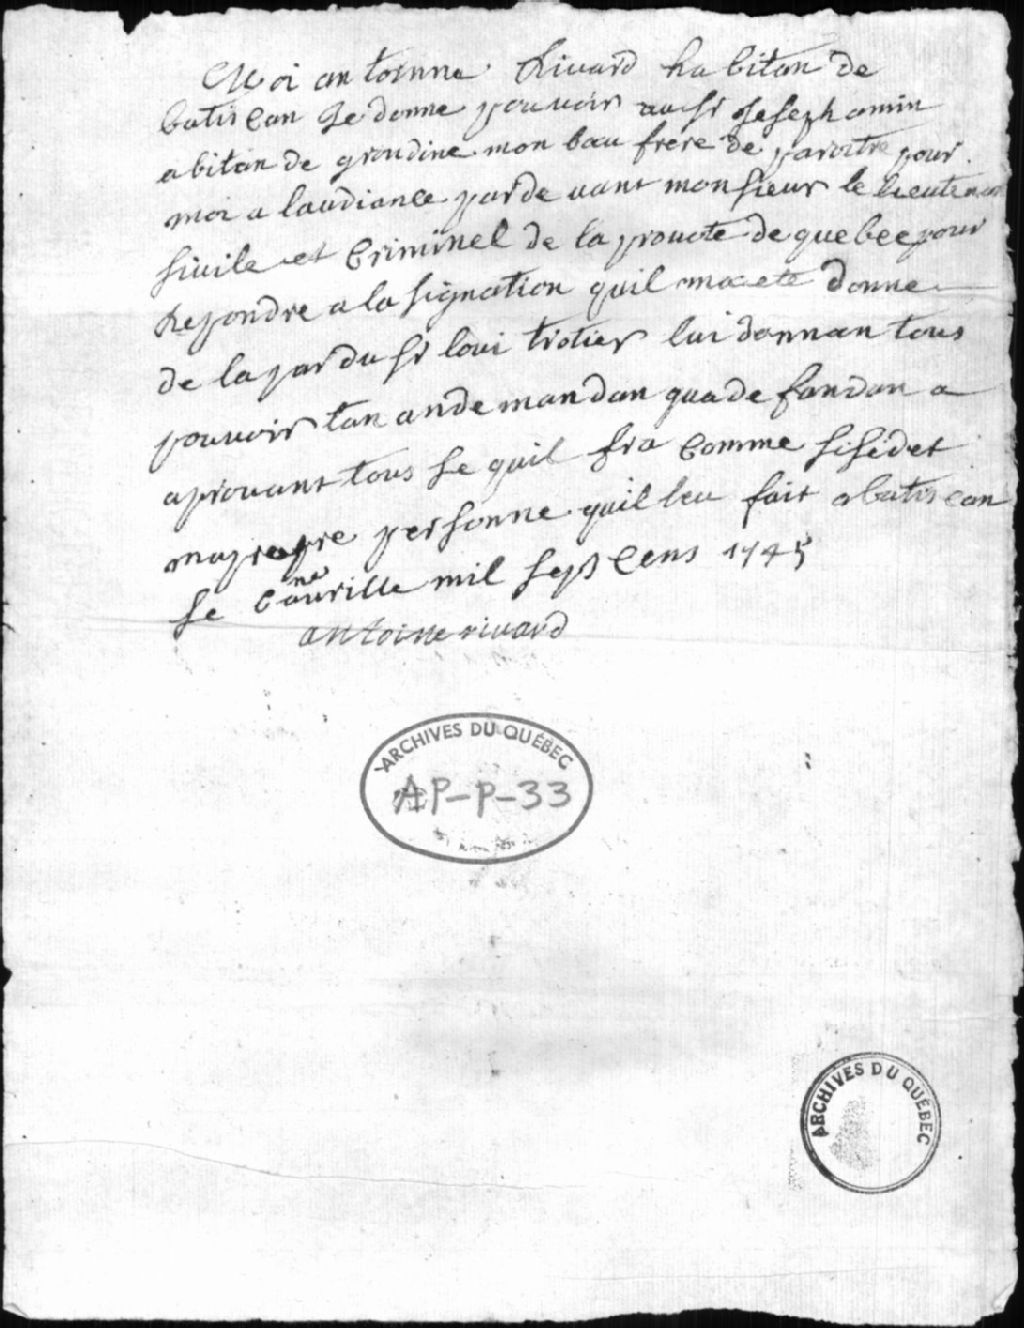 Moi antoinne Rivard habitan de
batiscan Je donne pouvoir au sr Joseph amin
abitan de grondine mon bau frere de paroitre pour
moi a laudiance parde vant monsieur le lieutenan
sivile et Criminel de la provote de quebec pour
Repondre a la signation quil ma ete donne
de la par du sr loui trotier lui donnan tous
pouvoir tan andemandan qua defandan a
aprouvant tous se quil fra comme si sédet
ma propre personne quil leu fait a batiscan
se avrille mil sept Cens 1745
antoine rivard
ARCHIVES DU QUÉBEC
AP-P-33
ARCHIVES DU QUÉBEC